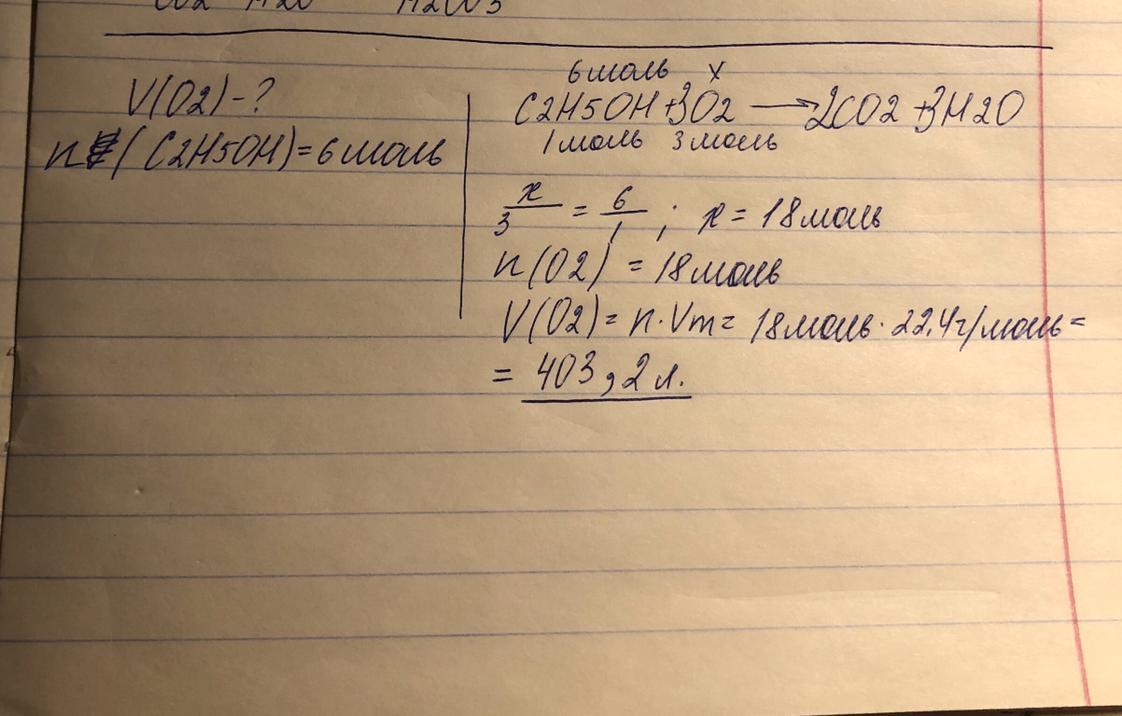 CO2 H2O H2CO3
V(O2)-?
n(C2H5OH)=6моль
6моль x
C2H5OH+3O2 → 2CO2+3H2O
1моль 3моль
x/3 = 6/1; x = 18моль
n(O2) = 18моль
V(O2)= n·Vm= 18моль·22,4г/моль=
= 403,2 л.